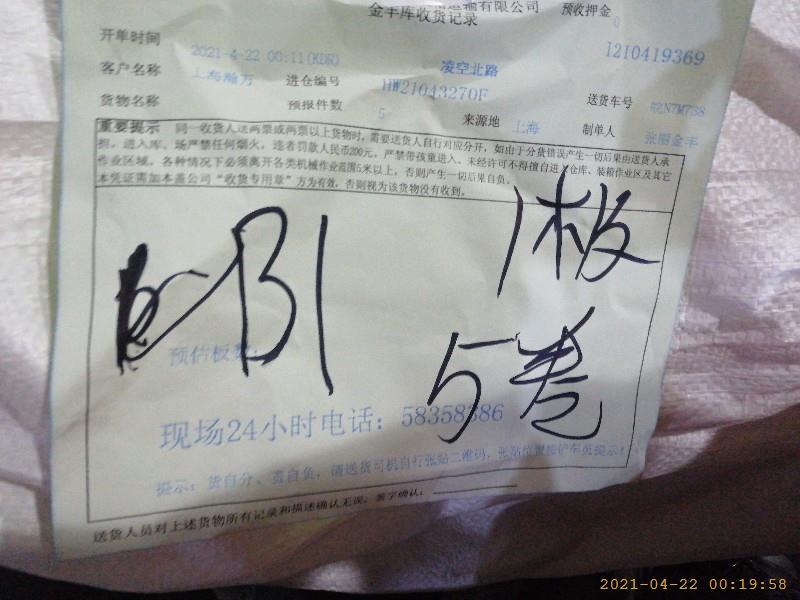 有限公司
金丰库收货记录
预收押金
0
开单时间 2021-4-22 00:11(KDR) 凌空北路 1210419369
客户名称 上海瀚万 进仓编号 HW21043270F 送货车号 皖N7M738
货物名称 预报件数 5 来源地 上海 制单人 张丽金丰
重要提示 同一收货人送两票或两票以上货物时,需要送货人自行对应分开,如由于分货错误产生一切后果由送货人承
担,进入库、场严禁任何烟火,违者罚款人民币200元,严禁带孩童进入、未经许可不得擅自进入仓库、装箱作业区及其它
作业区域,各种情况下必须离开各类机械作业范围5米以上,否则产生一切后果自负。
本凭证需加本盖公司“收货专用章”方为有效,否则视为该货物没有收到。
1板
B1
5卷
预估板数:
现场24小时电话:58358386
提示:货自分、责自负,请送货司机自行张贴二维码,张贴位置按铲车员提示!
送货人员对上述货物所有记录和描述确认无误,签字确认:
2021-04-22 00:19:58